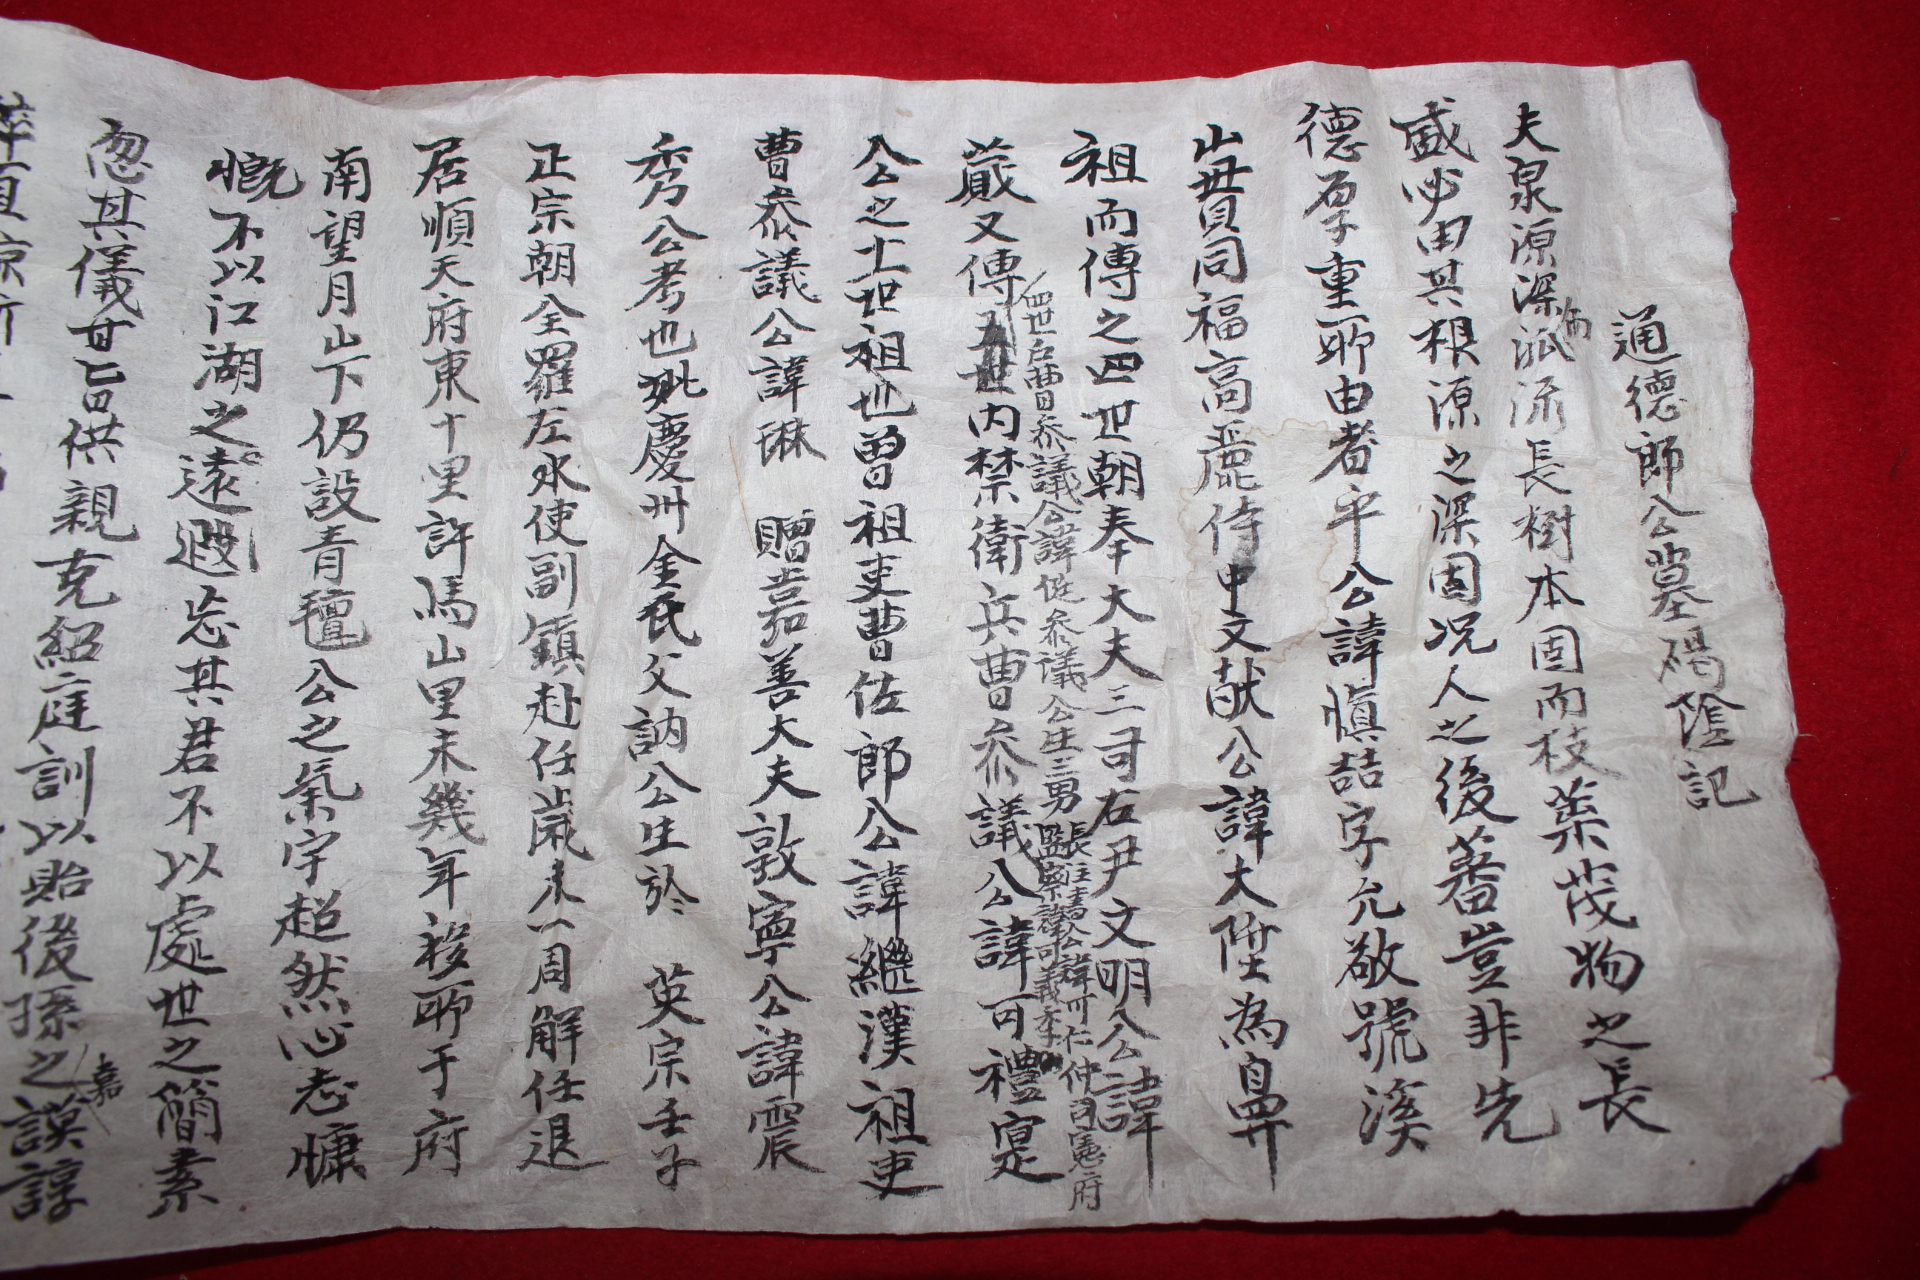 通德郎公墓碣陰記
夫泉源深而流長樹本固而枝葉茂物之長
盛必由其根源之深固况人之後蕃豈非先
德厚重所由者乎公諱愼喆字允敬號溪
山貫同福高麗侍中文献公諱大陞為鼻
祖而傳之四世朝奉大夫三司右尹文明公諱
蕆又傳
四世戶曹叅議公諱 叅議公生三男長 公諱可仁仲司憲府
監察諱可義季
内禁衛兵曹叅議公諱可禮寔
公之十世祖也曾祖吏曹佐郎公諱繼漢祖吏
曹叅議公諱琳 贈嘉善大夫敦寧公諱震
秀公考也妣慶州金氏父訥公生於 英宗壬子
正宗朝全羅左水使副鎮赴任歲未一周解任退
居順天府東十里許馬山里未幾年移所于府
南望月山下仍設青氊公之氣宇超然心志慷
慨不以江湖之遠遐忘其君不以處世之簡素
忽其儀甘旨供親克紹庭訓以貽後孫之嘉謨諄